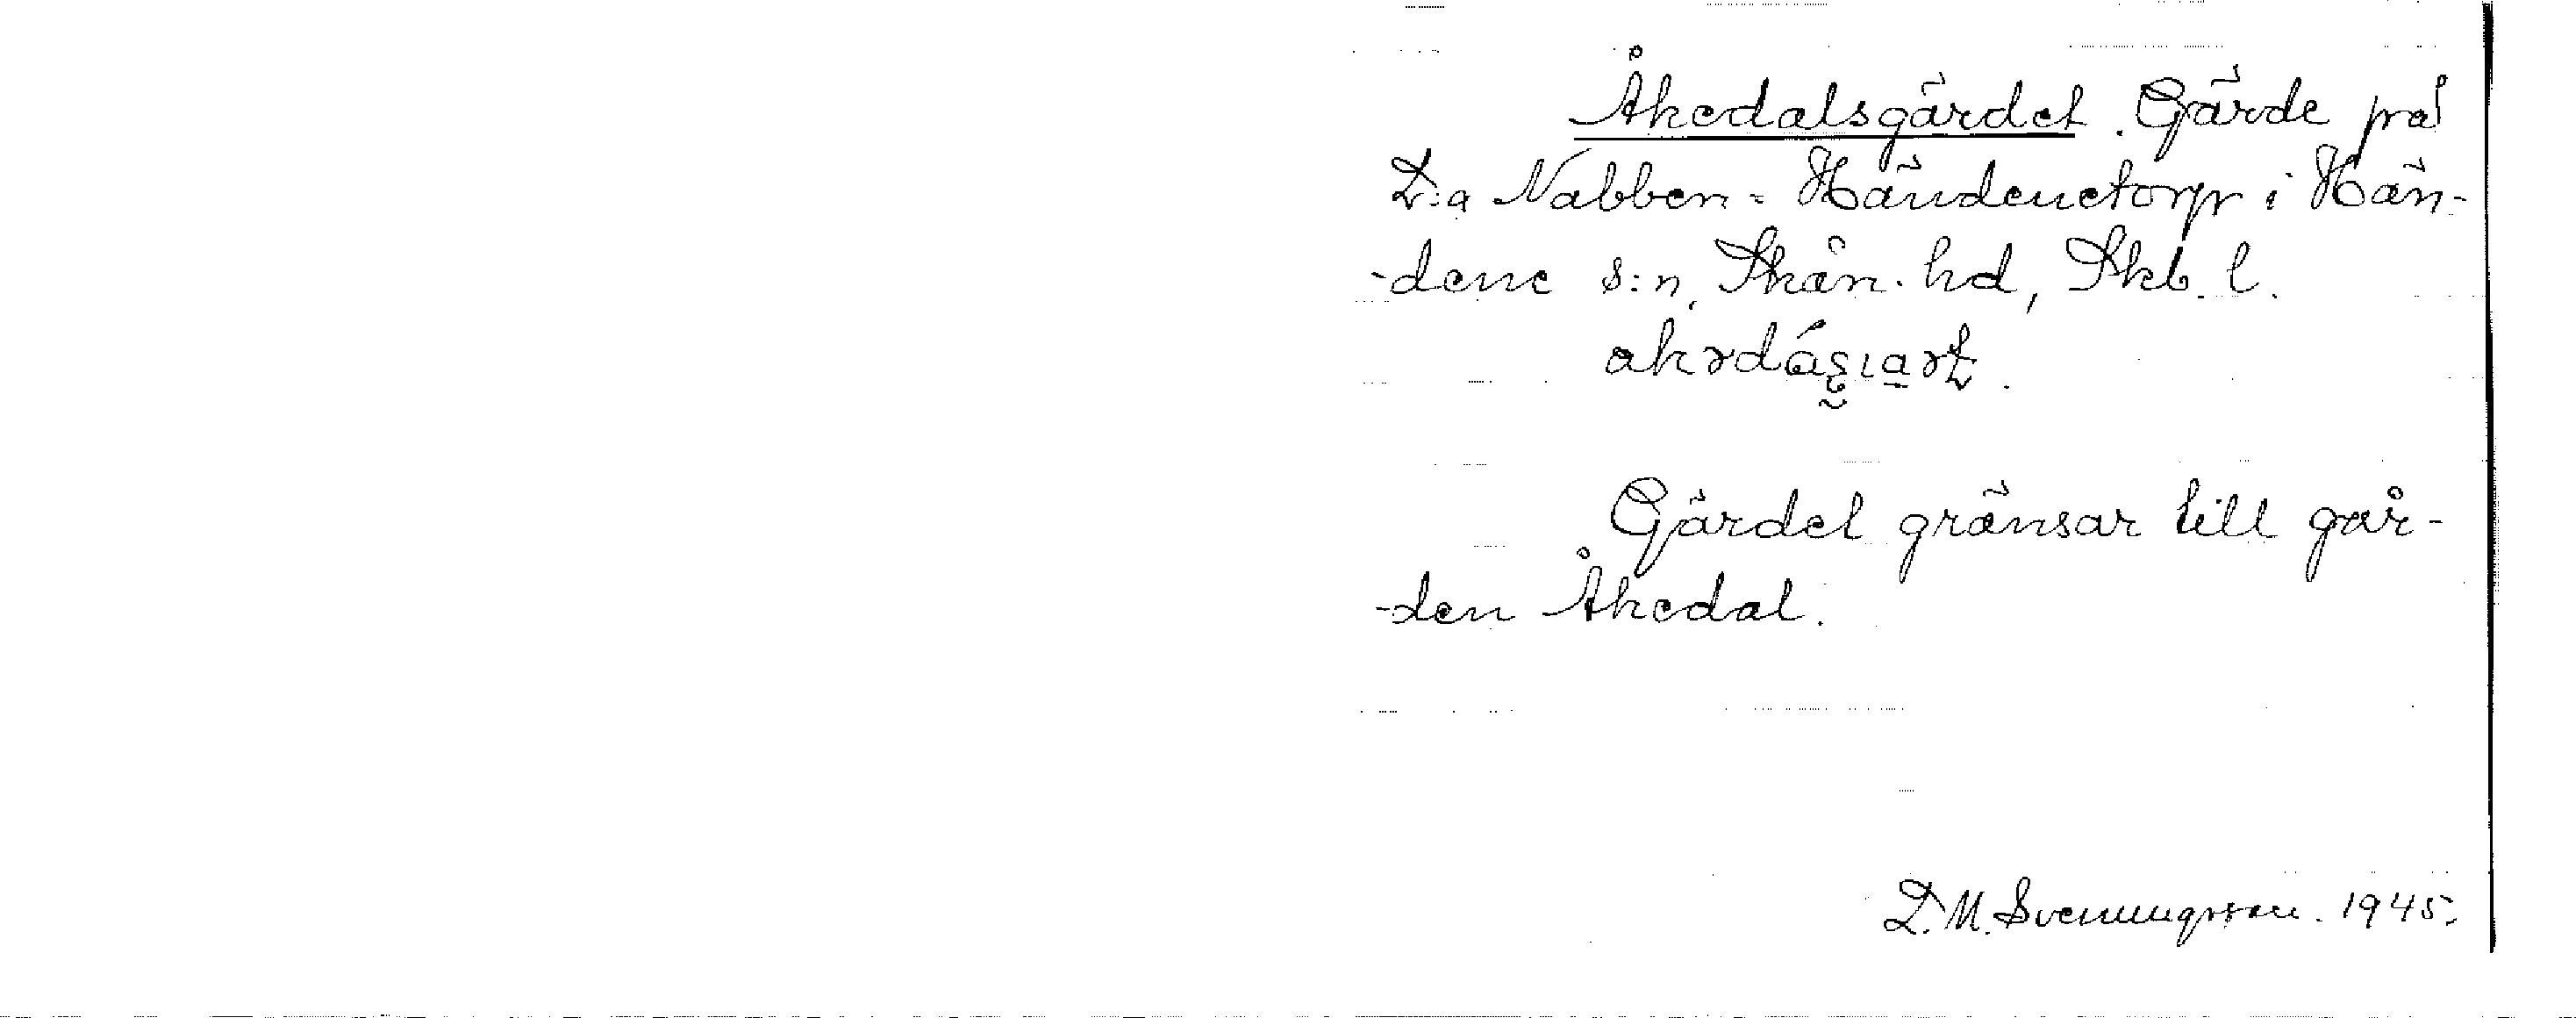 Åkedalsgärdet. Gärde på
L:a Nabben = Händenetorp i Hän-
-dene s:n, Skån. hd, Skb. l.
Gärdet gränsar till går-
-den Åkedal.
D. M. Svenungsson. 1945.